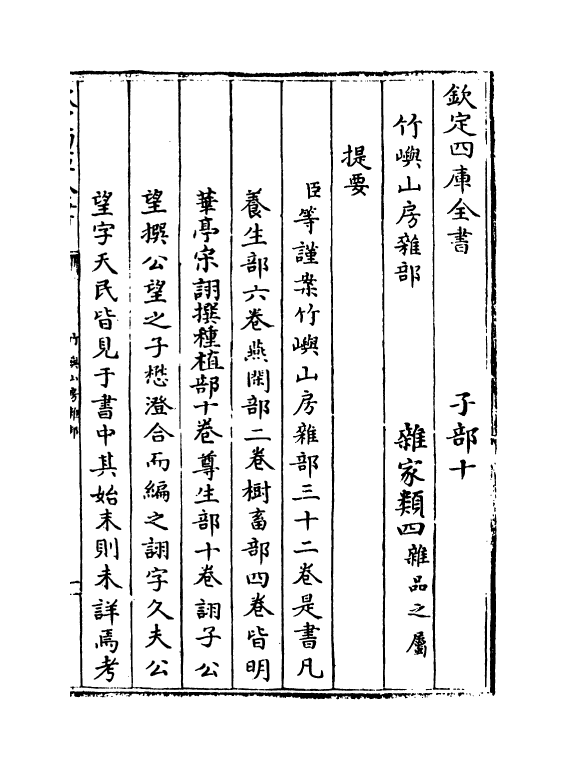 欽定四庫全書　子部十
竹嶼山房雜部　雜家類四雜品之屬
提要
臣等謹案竹嶼山房雜部三十二卷是書凡
養生部六卷燕閒部二卷樹畜部四卷皆明
華亭宋詡撰種植部十卷尊生部十卷詡子公
望撰公望之子懋澄合而編之詡字久夫公
望字天民皆見于書中其始末則未詳焉考
竹嶼山房雜部